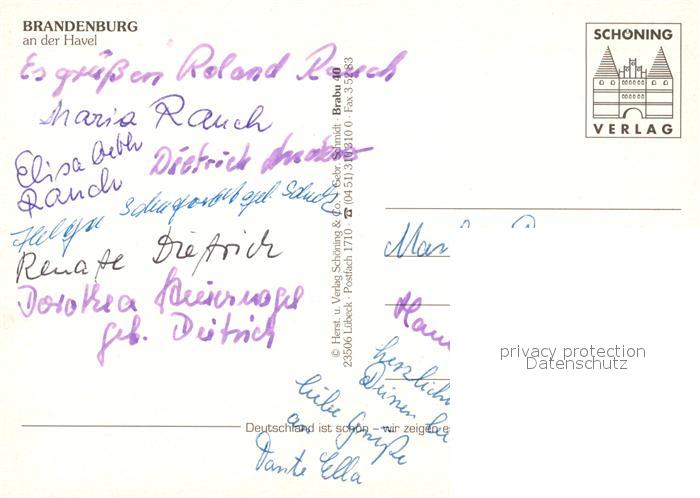 BRANDENBURG
an der Havel
Es grüßen Roland Rauch
Maria Rauch
Elisabeth
Rauch
Dietrich
Helga geb.
Renate Dietrich
Dorothea
geb. Dietrich
© Herst. u. Verlag Schöning & Co + Gebr. Schmidt · Brabu 40
23506 Lübeck · Postfach 1710 · ☎ (04 51) 3 10 310 0 · Fax 3 52 83
SCHÖNING
VERLAG
privacy protection
Datenschutz
liebe Grüße
an
Tante Ella
Deutschland ist schön – wir zeigen e